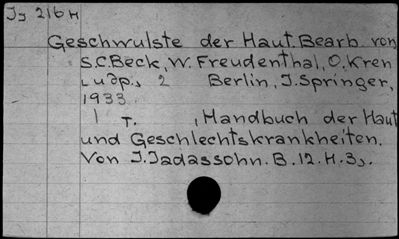 Jj 216 H
Geschwulste der Haut. Bearb von
S.C.Beck, W. Freudenthal, O. Kren
u др., 2 Berlin, J. Springer,
1933
1 т. , Handbuch der Haut
und Geschlechtskrankheiten.
Von J. Jadassohn. B. 12. H. 3,.